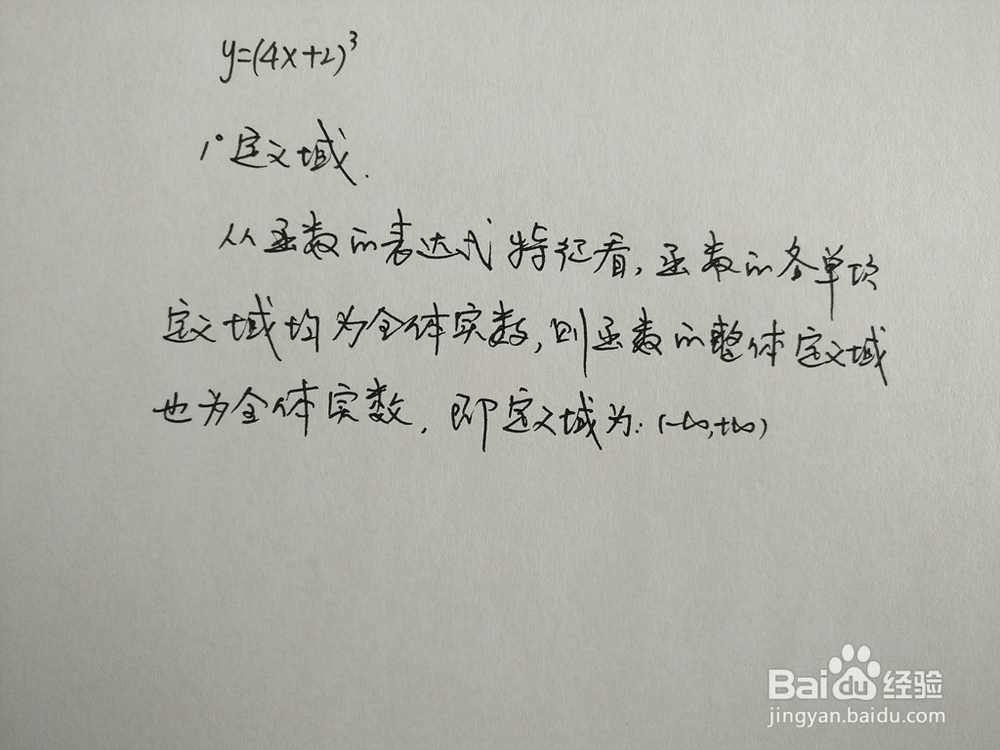 y=(4x+2)³
1°定义域.
从函数的表达式特征看,函数的各单项
定义域均为全体实数,则函数的整体定义域
也为全体实数,即定义域为:(-∞,+∞)
Baidu经验
jingyan.baidu.com